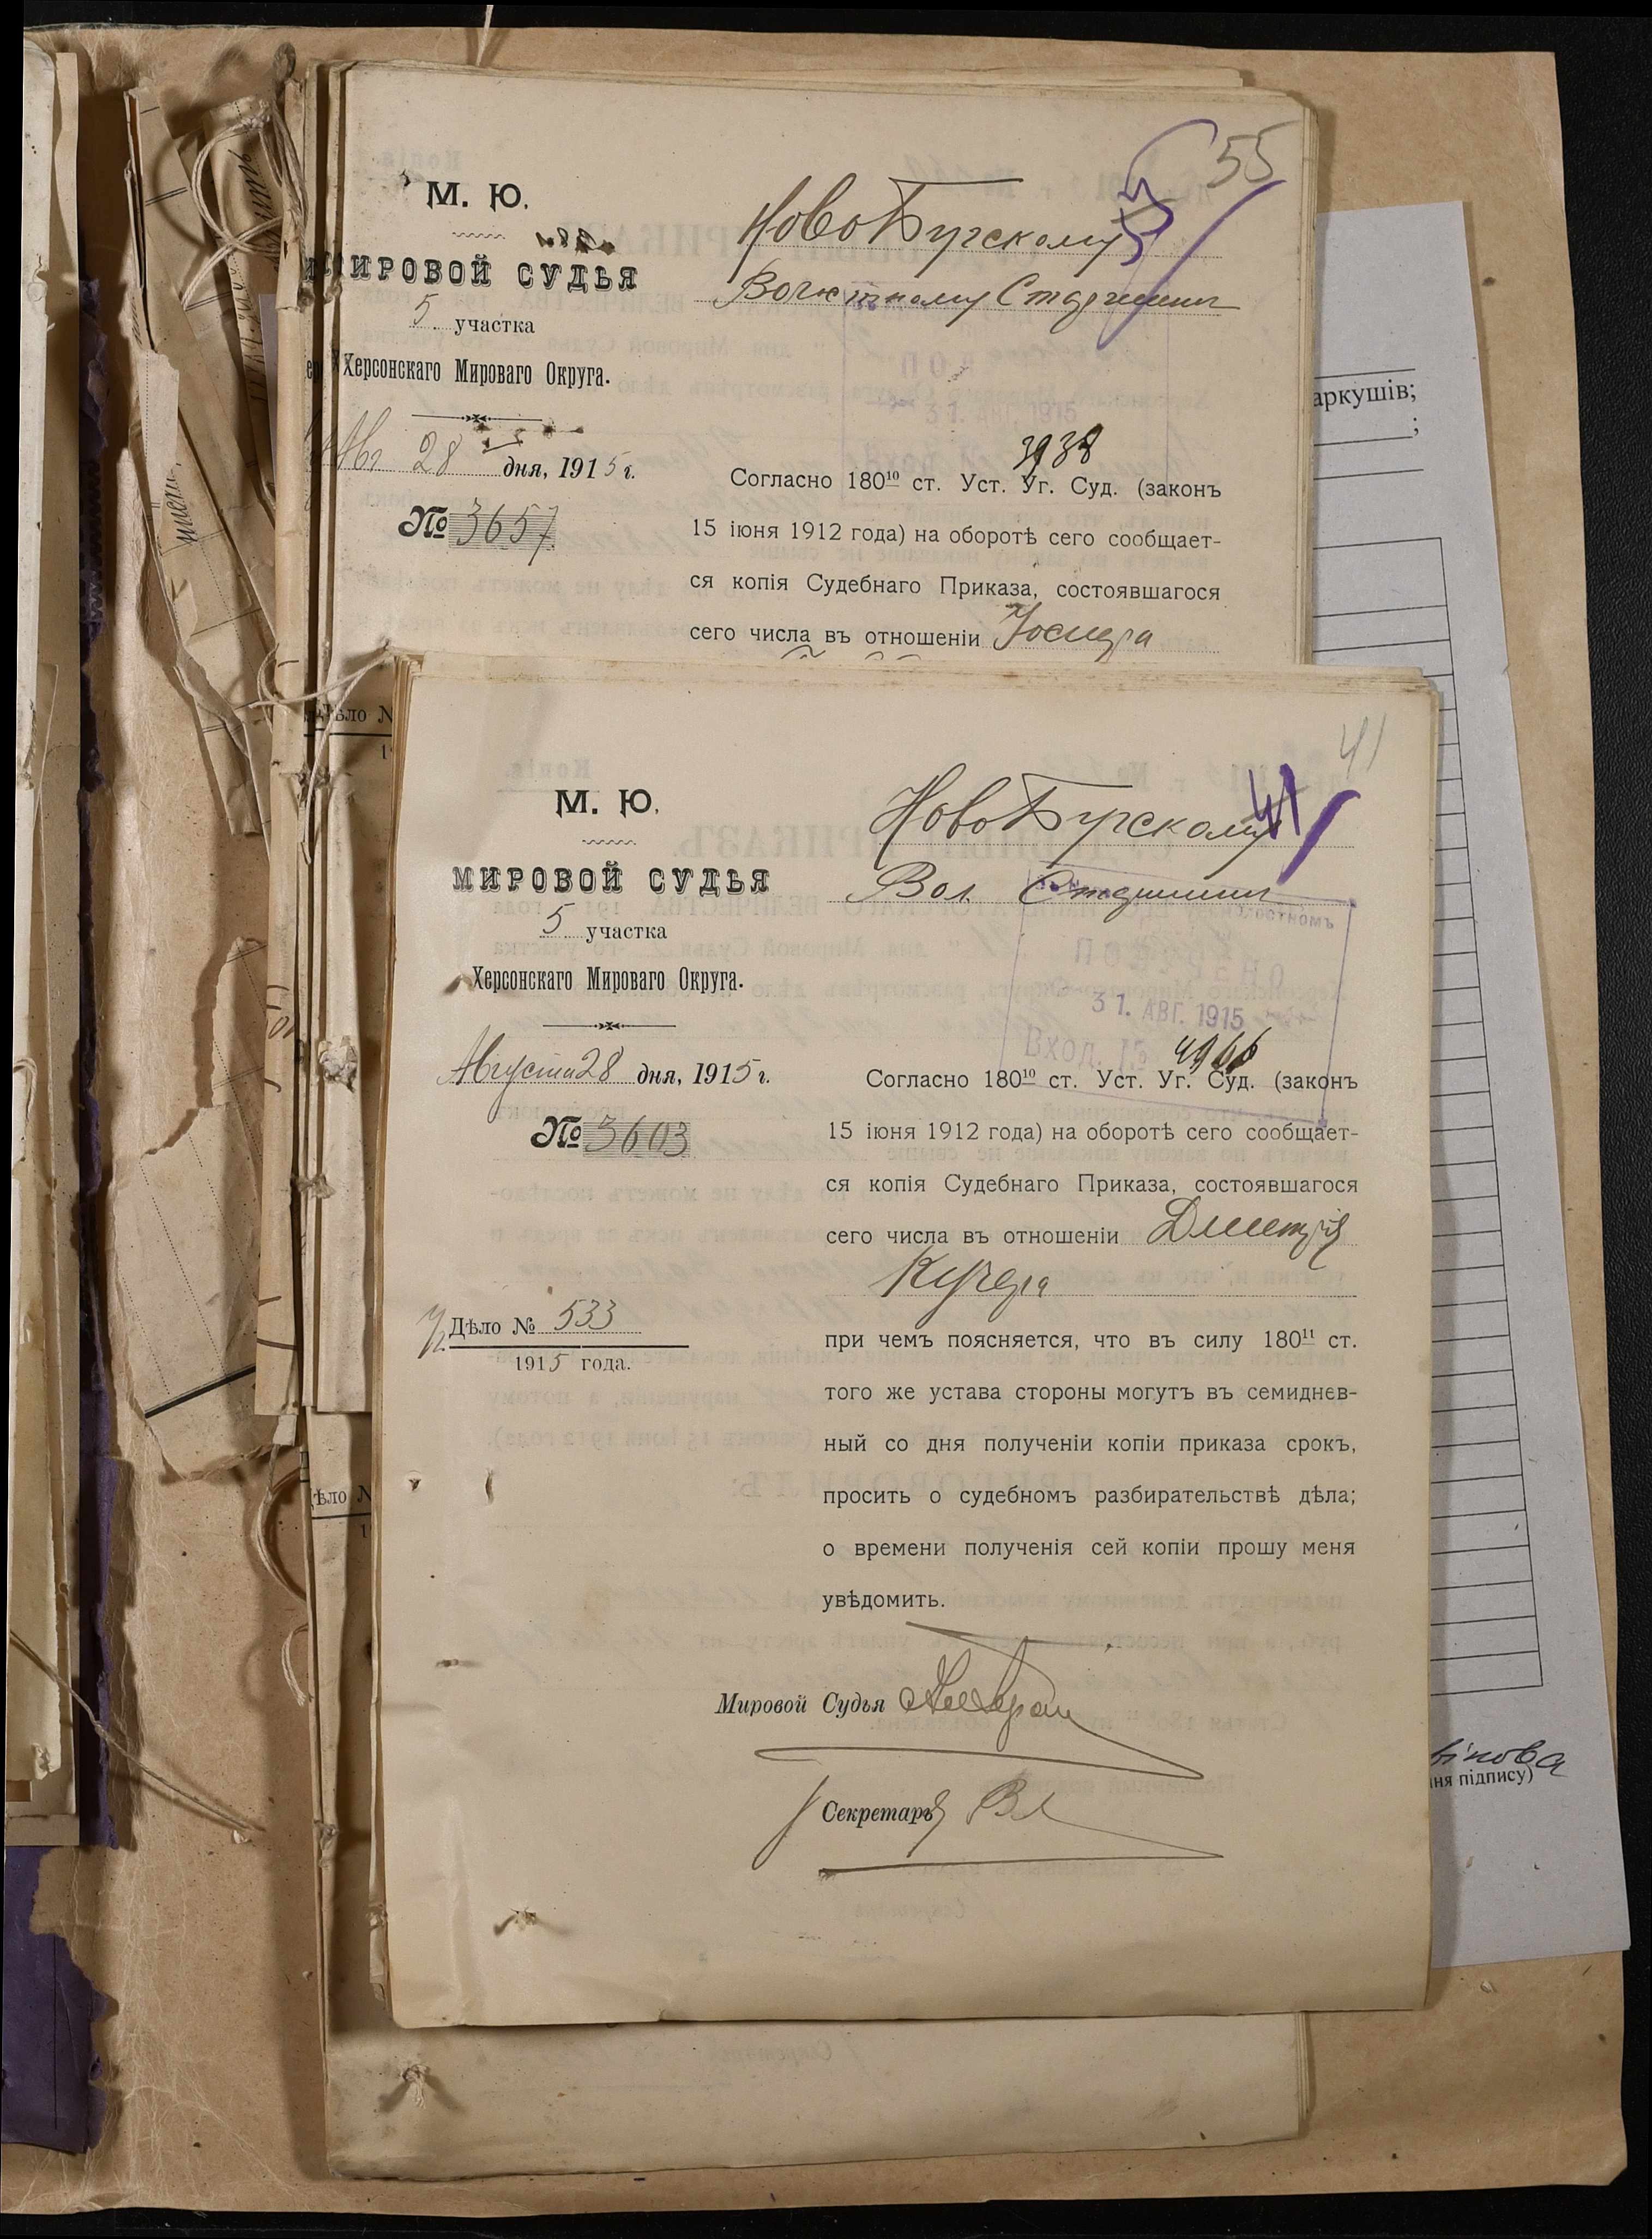 55
М. Ю.
МИРОВОЙ СУДЬЯ
5 участка
Херсонскаго Мироваго Округа.
Авг 28 дня, 1915 г.
№ 3657
НовоБугскому
Волостному Старшине
31. АВГ. 1915
3938
Согласно 180¹⁰ ст. Уст. Уг. Суд. (законъ
15 іюня 1912 года) на оборотѣ сего сообщает-
ся копія Судебнаго Приказа, состоявшагося
сего числа въ отношеніи
аркушів;
;
Дѣло №
41
М. Ю.
МИРОВОЙ СУДЬЯ
5 участка
Херсонскаго Мироваго Округа.
Августа 28 дня, 1915 г.
№ 3603
Дѣло № 533
1915 года.
41
НовоБугскому
Вол. Старшине
ПОЛУЧЕНО
31. АВГ. 1915
Вход. №
Согласно 180¹⁰ ст. Уст. Уг. Суд. (законъ
15 іюня 1912 года) на оборотѣ сего сообщает-
ся копія Судебнаго Приказа, состоявшагося
сего числа въ отношеніи Дмитрія
Кучера
при чемъ поясняется, что въ силу 180¹¹ ст.
того же устава стороны могутъ въ семиднев-
ный со дня полученіи копіи приказа срокъ,
просить о судебномъ разбирательствѣ дѣла;
о времени полученія сей копіи прошу меня
увѣдомить.
Мировой Судья
Секретарь
Дѣло №
вікова
ння підпису)